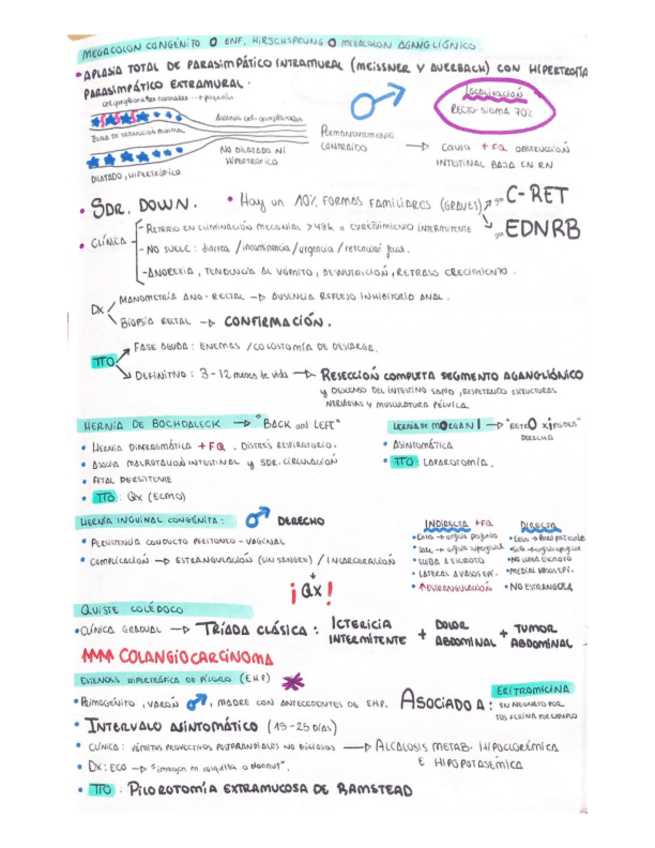 MEGACOLON CONGÉNITO O ENF. HIRSCHSPRUNG O MEGACOLON AGANGLIÓNICO
• APLASIA TOTAL DE PARASIMPÁTICO INTRAMURAL (MEISSNER Y AUERBACH) CON HIPERTROFIA
PARASIMPÁTICO EXTRAMURAL.
Localización
RECTO-SIGMA 70%
ZONA DE TRANSICIÓN
NO DILATADO NI
HIPERTRÓFICO
DILATADO, HIPERTRÓFICO
PERMANENTEMENTE
CONTRAIDO
→ CAUSA + FQ OBSTRUCCIÓN
INTESTINAL BAJA EN RN
• SDR. DOWN. • Hay un 10% FORMAS FAMILIARES (GRAVES) gen C-RET
gen EDNRB
• CLÍNICA
- RETRASO EN ELIMINACIÓN MECONIAL > 48h o ESTREÑIMIENTO INTERMITENTE
- NO SUELE: diarrea / incontinencia / urgencia / retención fecal.
- ANOREXIA, TENDENCIA AL VÓMITO, DESNUTRICIÓN, RETRASO CRECIMIENTO.
DX
MANOMETRÍA ANO-RECTAL → AUSENCIA REFLEJO INHIBITORIO ANAL.
BIOPSIA RECTAL → CONFIRMACIÓN.
TTO
FASE AGUDA: ENEMAS / COLOSTOMÍA DE DESCARGA.
DEFINITIVO: 3-12 meses de vida → RESECCIÓN COMPLETA SEGMENTO AGANGLIÓNICO
y DESCENSO DEL INTESTINO SANO, RESPETANDO ESTRUCTURAS
NERVIOSAS Y MUSCULATURA PÉLVICA.
HERNIA DE BOCHDALECK → "BACK and LEFT"
• HERNIA DIAFRAGMÁTICA + FQ. DISTRÉS RESPIRATORIO.
• ASOCIA MALROTACIÓN INTESTINAL y SDR. CIRCULACIÓN
• FETAL PERSISTENTE
• TTO: QX (ECMO)
HERNIA DE MORGANI → "RETRO XIFOIDEA"
DERECHA
• ASINTOMÁTICA
• TTO: LAPAROTOMÍA.
HERNIA INGUINAL CONGÉNITA: ♂ DERECHO
• PERSISTENCIA CONDUCTO PERITONEO-VAGINAL
• COMPLICACIÓN → ESTRANGULACIÓN (SIN SANGRE) / INCARCERACIÓN
¡QX!
INDIRECTA +FQ
• LLEGA A ESCROTO
• LATERAL A VASOS EPI.
• ↑ESTRANGULACIÓN
DIRECTA
• NO LLEGA ESCROTO
• MEDIAL VASOS EPI.
• NO ESTRANGULA
QUISTE COLÉDOCO
• CLÍNICA GRADUAL → TRÍADA CLÁSICA: ICTERICIA INTERMITENTE + DOLOR ABDOMINAL + TUMOR ABDOMINAL
COLANGIOCARCINOMA
ESTENOSIS HIPERTRÓFICA DE PÍLORO (EHP)
• PRIMOGÉNITO, VARÓN ♂, MADRE CON ANTECEDENTES DE EHP. ASOCIADO A: ERITROMICINA
EN NEONATO POR
TOS FERINA POR EJEMPLO
• INTERVALO ASINTOMÁTICO (15-25 DÍAS)
• CLÍNICA: VÓMITOS PROYECTIVOS POSTPRANDIALES NO BILIOSOS → ALCALOSIS METAB. HIPOCLORÉMICA
E HIPOPOTASÉMICA
• DX: ECO → "imagen en rosquilla o donnut".
• TTO: PILOROTOMÍA EXTRAMUCOSA DE RAMSTEAD